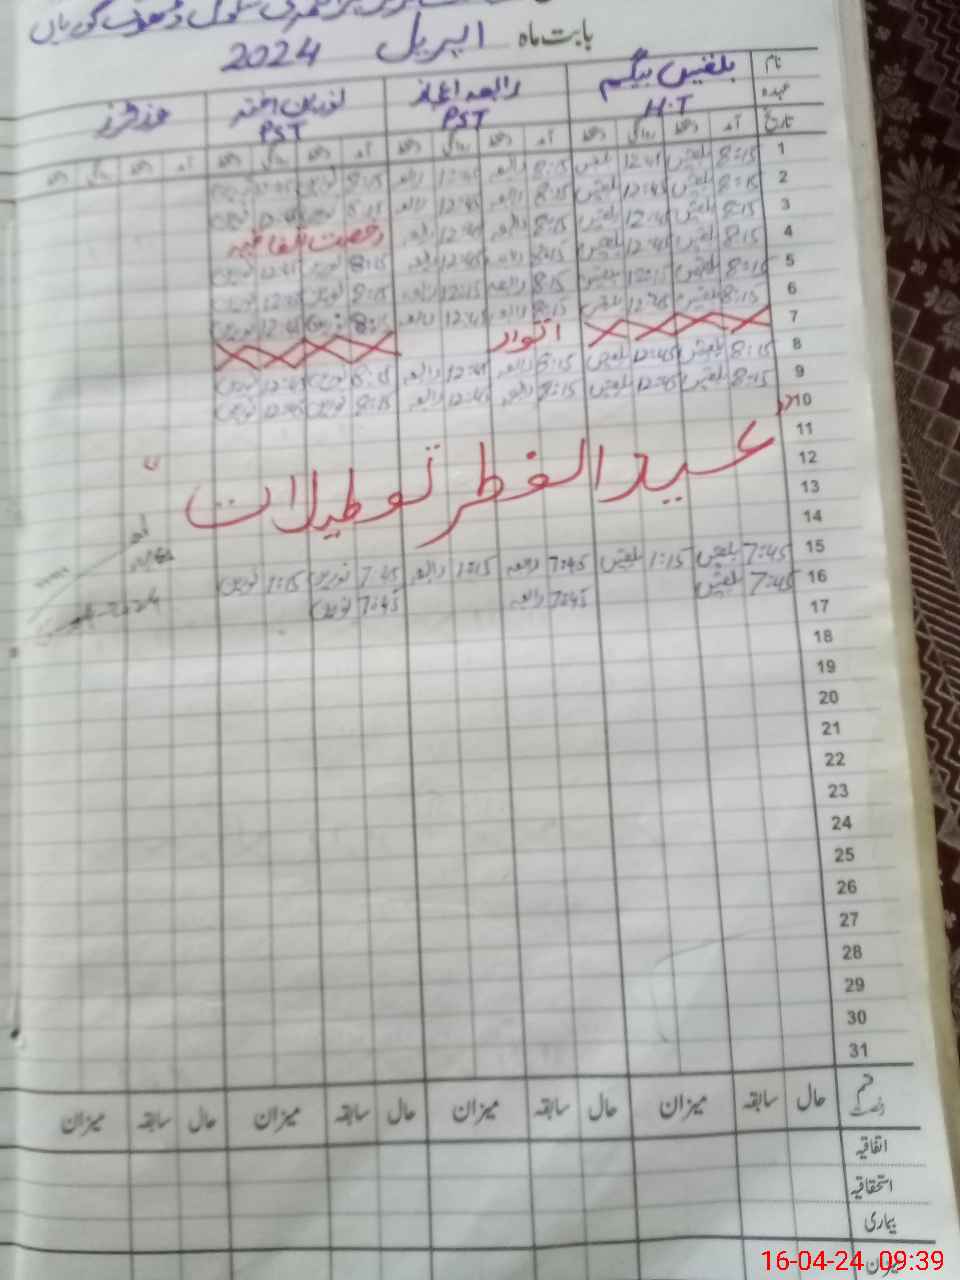 بابت ماہ اپریل 2024
نام بلقیس بیگم رابعہ اعجاز نورین اختر
عہدہ H.T PST PST
تاریخ آمد دستخط روانگی دستخط آمد دستخط روانگی دستخط آمد دستخط روانگی دستخط آمد دستخط روانگی دستخط
1 8:15 بلقیس 12:45 بلقیس 8:15 رابعہ 12:45 رابعہ 8:15 نورین 12:45 نورین
2 8:15 بلقیس 12:45 بلقیس 8:15 رابعہ 12:45 رابعہ 8:15 نورین 12:45 نورین
3 8:15 بلقیس 12:45 بلقیس 8:15 رابعہ 12:45 رابعہ رخصت اتفاقیہ
4 8:15 بلقیس 12:45 بلقیس 8:15 رابعہ 12:45 رابعہ 8:15 نورین 12:45 نورین
5 8:15 بلقیس 12:15 بلقیس 8:15 رابعہ 12:15 رابعہ 8:15 نورین 12:15 نورین
6 8:15 بلقیس 12:45 بلقیس 8:15 رابعہ 12:45 رابعہ 8:15 نورین 12:45 نورین
7 اتوار
8 8:15 بلقیس 12:45 بلقیس 8:15 رابعہ 12:45 رابعہ 8:15 نورین 12:45 نورین
9 8:15 بلقیس 12:45 بلقیس 8:15 رابعہ 12:45 رابعہ 8:15 نورین 12:45 نورین
10
11
12 عید الفطر تعطیلات
13
14
15 7:45 بلقیس 1:15 بلقیس 7:45 رابعہ 1:15 رابعہ 7:45 نورین 1:15 نورین
16 7:45 بلقیس 7:45 رابعہ 7:45 نورین
17
18
19
20
21
22
23
24
25
26
27
28
29
30
31
قسم رخصت حال سابقہ میزان حال سابقہ میزان حال سابقہ میزان حال سابقہ میزان
اتفاقیہ
استحقاقیہ
بیماری
میزان
16-04-24 09:39